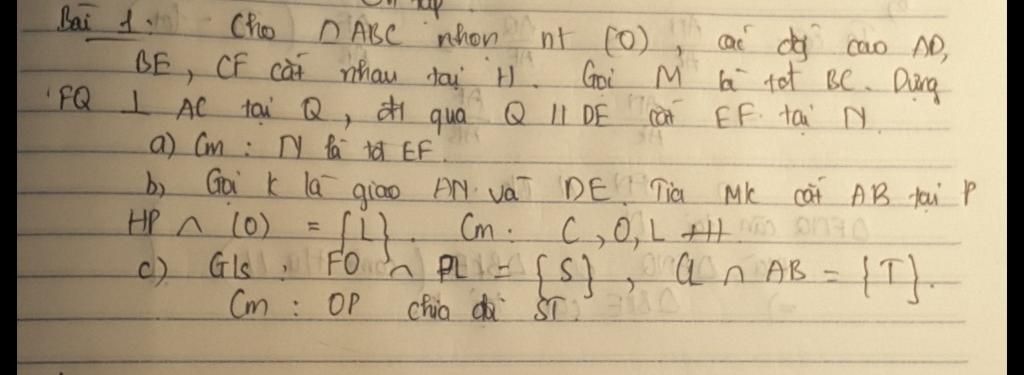 Bài 1: Cho △ABC nhọn nt (O), các đg cao AD,
BE, CF cắt nhau tại H. Gọi M là tđt BC. Dựng
FQ ⊥ AC tại Q, đt qua Q // DE cắt EF tại N.
a) Cm: N là tđ EF.
b) Gọi K là giao AN và DE. Tia MK cắt AB tại P
HP ∩ (O) = {L}. Cm: C, O, L tH.
c) Gls: FO ∩ PL = {S}, CL ∩ AB = {T}.
Cm: OP chia đôi ST.